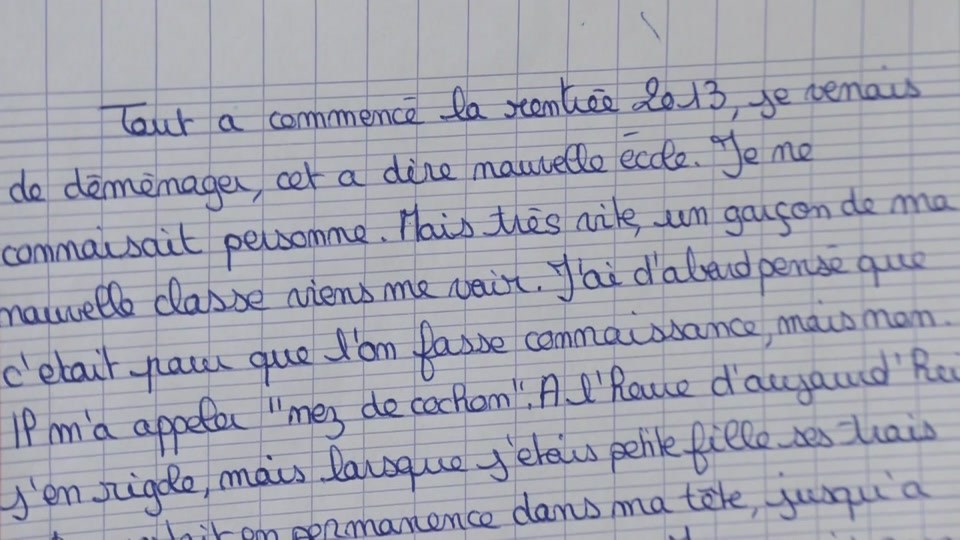 Tout a commencé la rentrée 2013, je venais
de déménager, cet a dire nouvelle école. Je ne
connaisait personne. Mais très vite, un garçon de ma
nouvelle classe viens me voir. J'ai d'abord pensé que
c'etait pour que l'on fasse connaissance, mais non.
Il m'a appeler "nez de cochon". A l'heure d'aujourd'hui
j'en rigole, mais lorsque j'etais petite fille ses trois
en permanence dans ma tête, jusqu'a